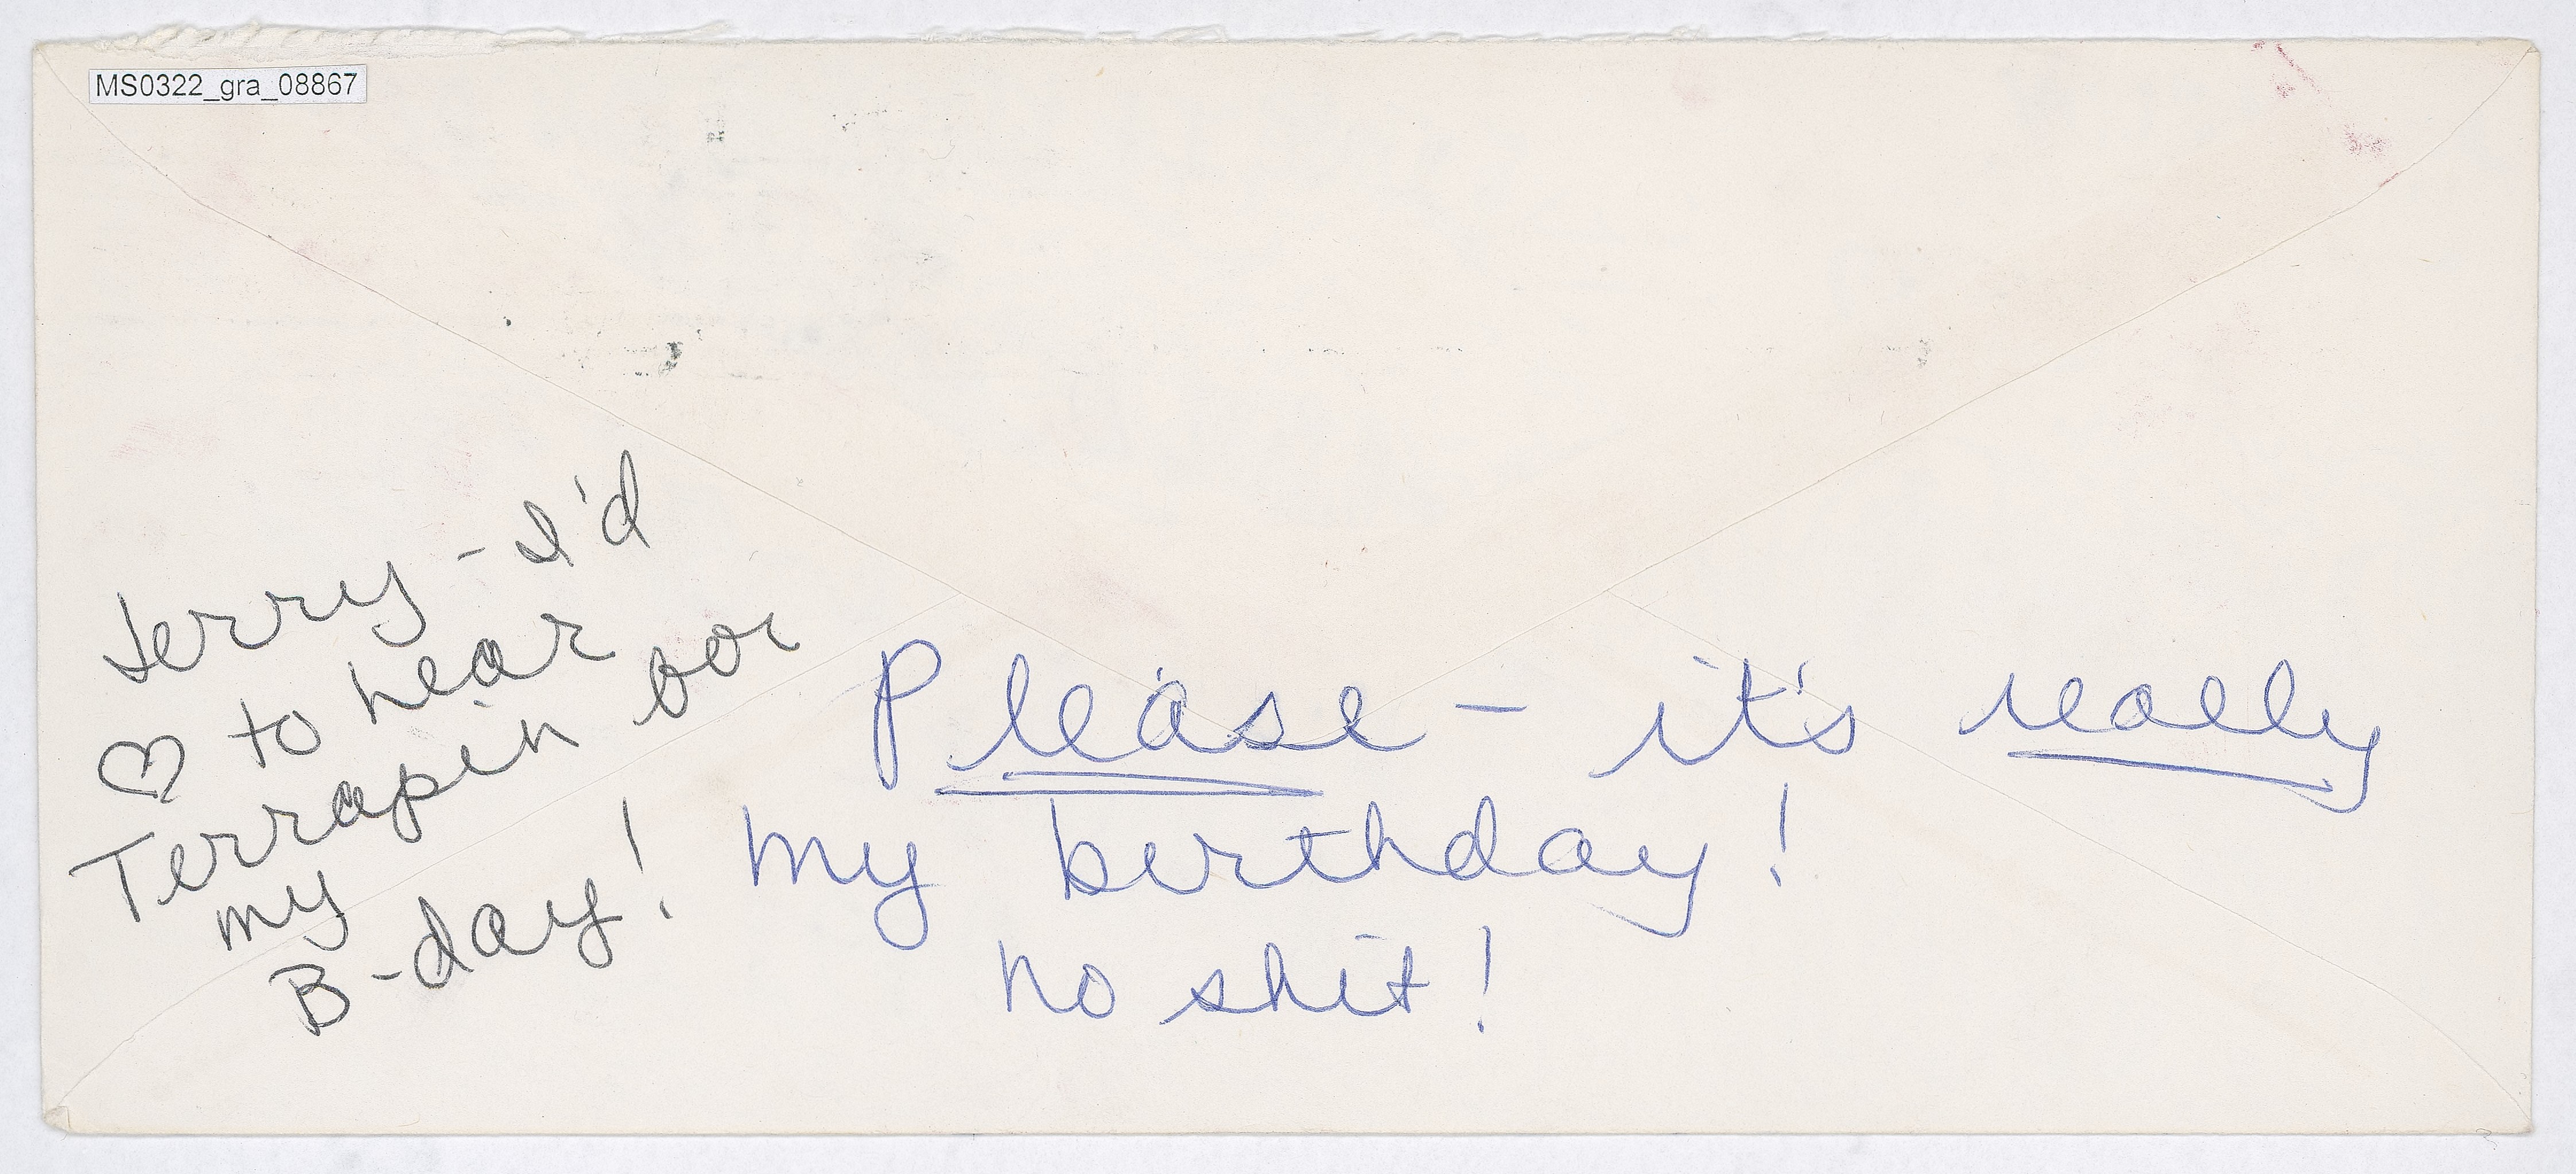 MS0322_gra_08867
Jerry - I'd
♡ to hear
Terrapin for
my
B-day!
Please - it's really
my birthday!
no shit!